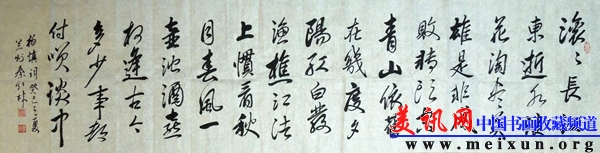 滚〻長江
東逝水浪
花淘尽英
雄是非成
敗转头空
青山依舊
在幾度夕
陽紅白發
漁樵江渚
上慣看秋
月春風一
壶濁酒喜
相逢古今
多少事都
付笑談中
杨慎词癸巳之夏
美讯网
中国书画收藏频道
www.meixun.org